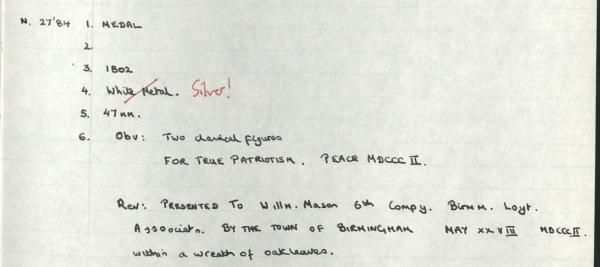 N. 27'84 1. MEDAL
2.
3. 1802
4. White Metal. Silver!
5. 47mm.
6. Obv: Two classical figures
FOR TRUE PATRIOTISM. PEACE MDCCC II.
Rev: PRESENTED TO Willm. Mason 6th Compy. Birmm. Loyt.
Association. BY THE TOWN OF BIRMINGHAM MAY XXVIII MDCCCII.
within a wreath of oakleaves.